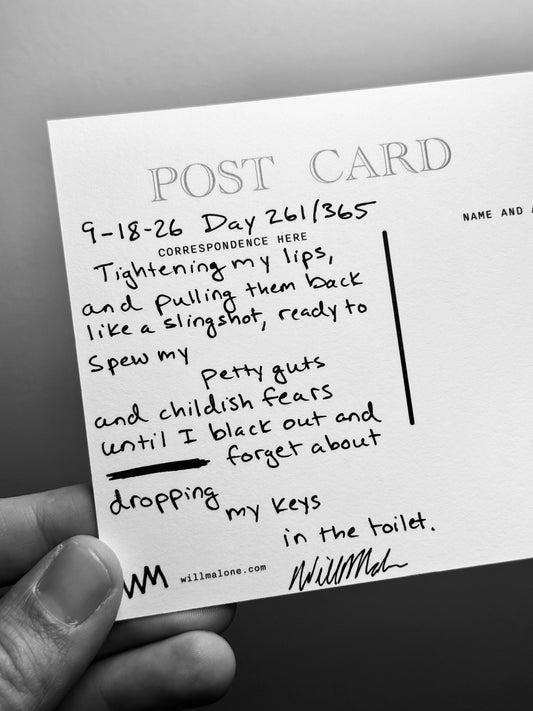 POST CARD
9-18-26 Day 261/365
CORRESPONDENCE HERE
NAME AND
Tightening my lips,
and pulling them back
like a slingshot, ready to
spew my
petty guts
and childish fears
until I black out and
forget about
dropping
my keys
in the toilet.
WM willmalone.com